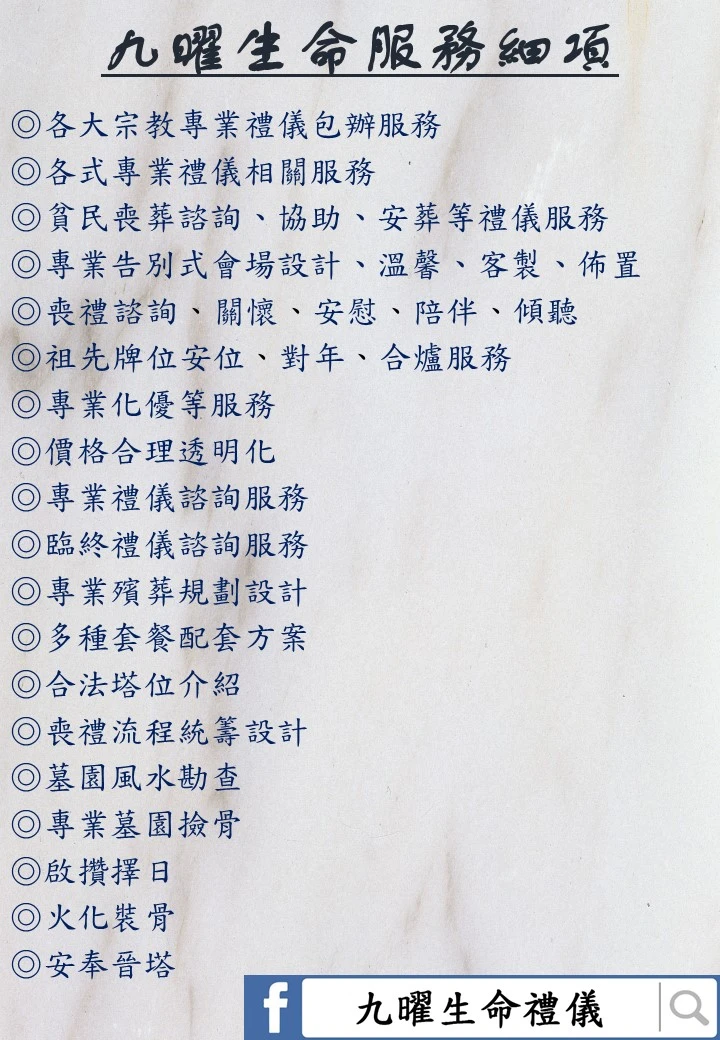 九曜生命服務細項
◎各大宗教專業禮儀包辦服務
◎各式專業禮儀相關服務
◎貧民喪葬諮詢、協助、安葬等禮儀服務
◎專業告別式會場設計、溫馨、客製、佈置
◎喪禮諮詢、關懷、安慰、陪伴、傾聽
◎祖先牌位安位、對年、合爐服務
◎專業化優等服務
◎價格合理透明化
◎專業禮儀諮詢服務
◎臨終禮儀諮詢服務
◎專業殯葬規劃設計
◎多種套餐配套方案
◎合法塔位介紹
◎喪禮流程統籌設計
◎墓園風水勘查
◎專業墓園撿骨
◎啟攢擇日
◎火化裝骨
◎安奉晉塔
f 九曜生命禮儀